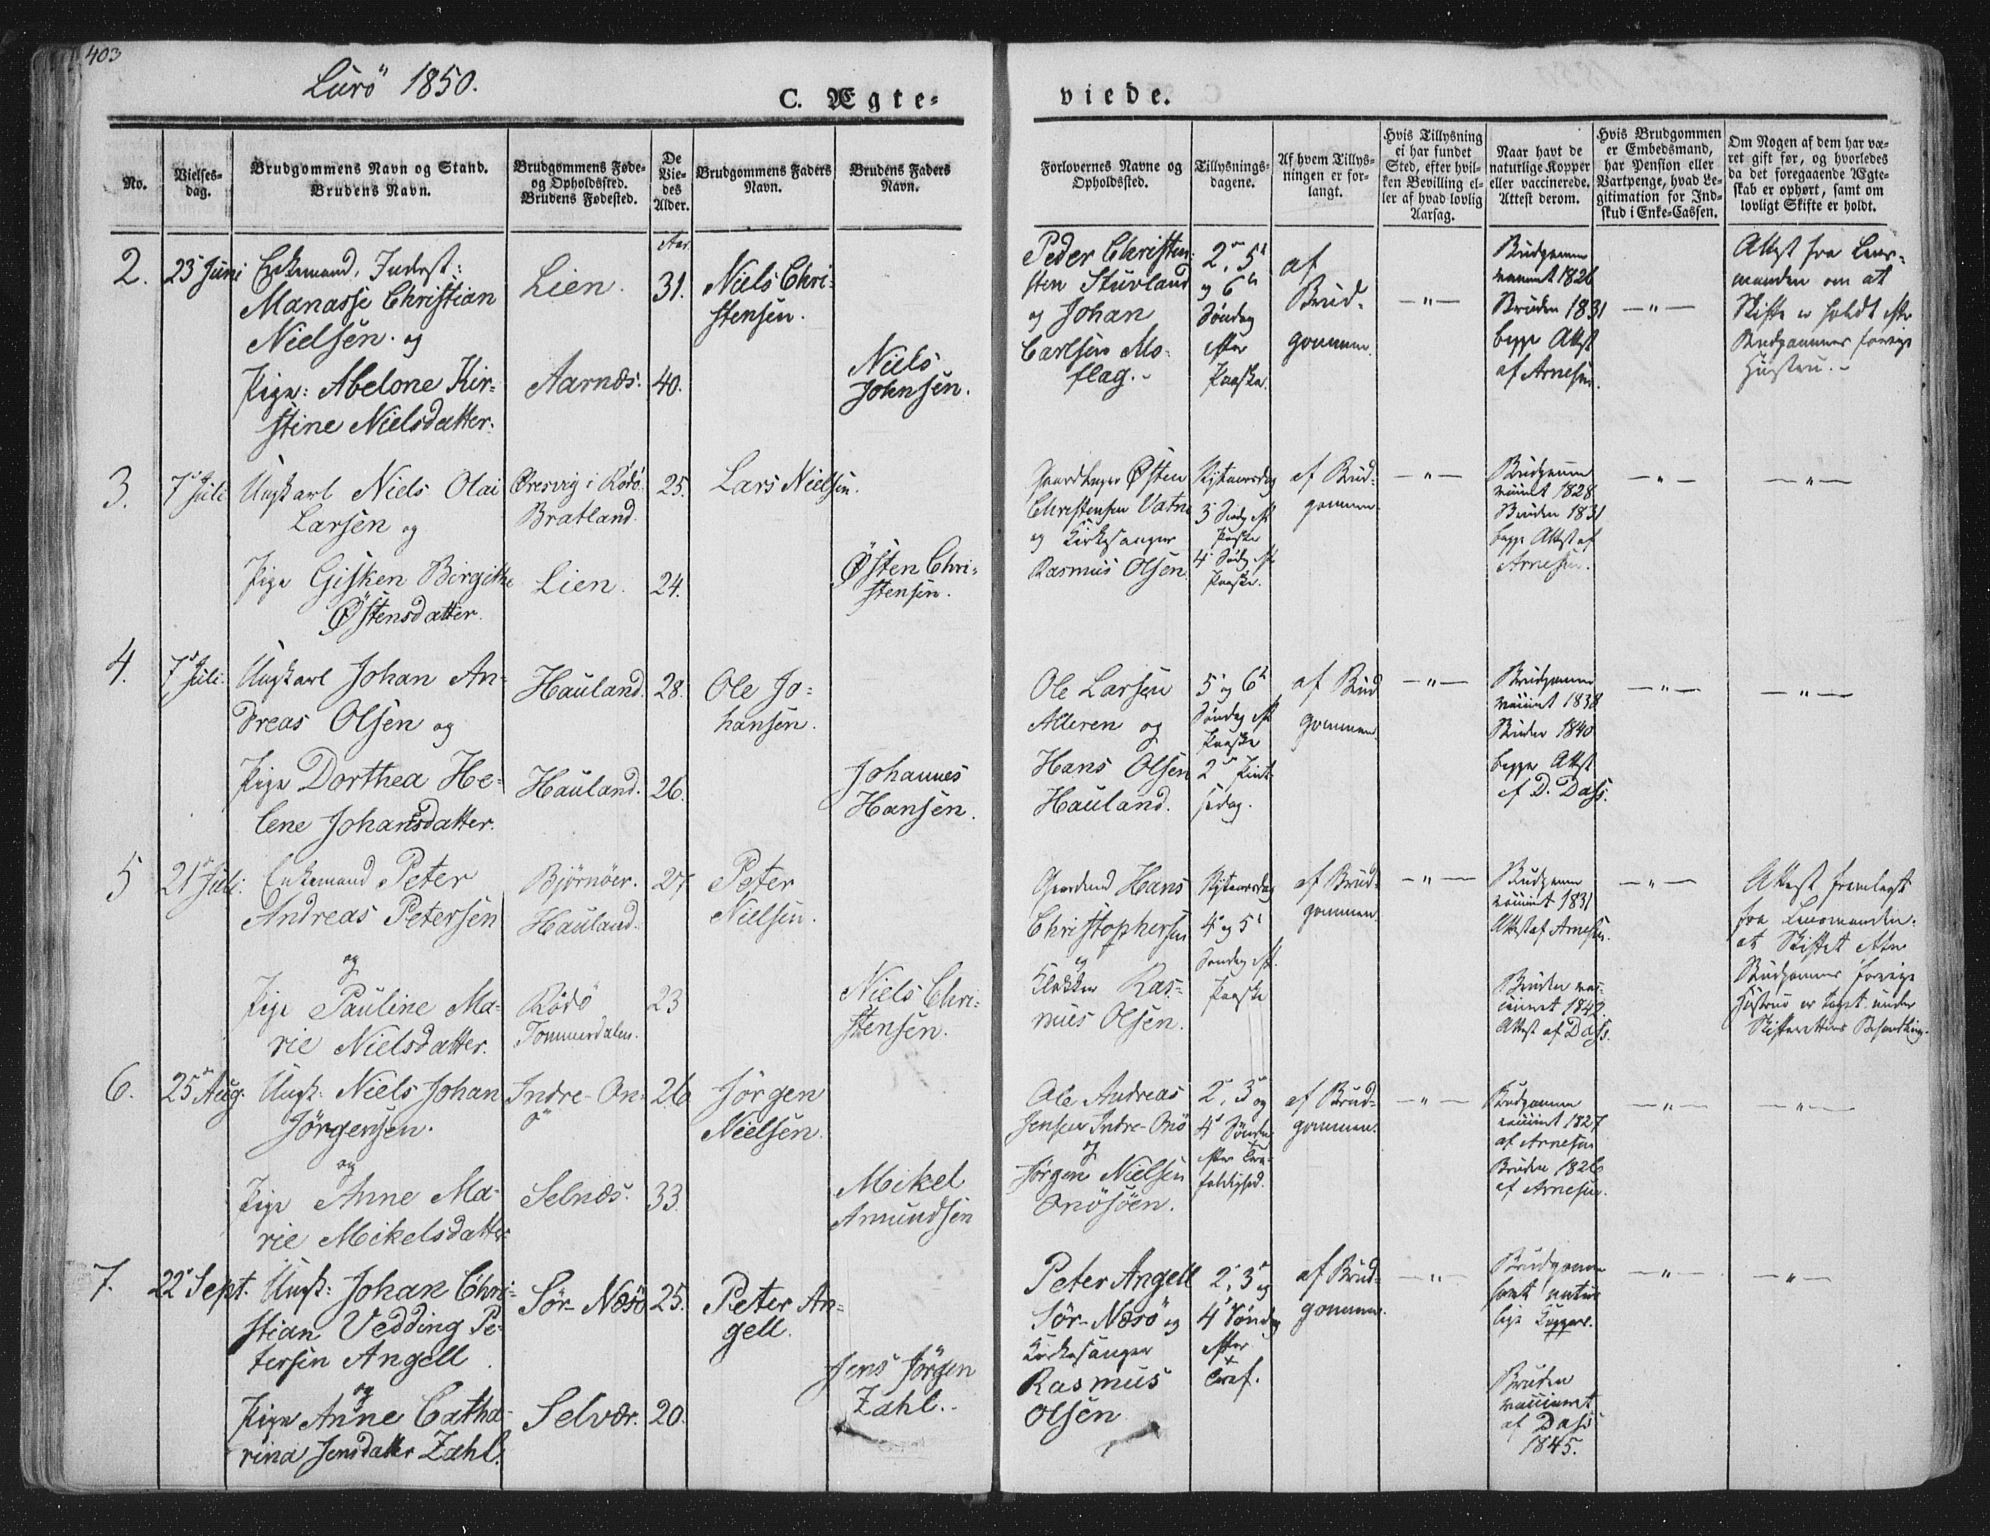 403
Lurö 1850.
C. Ægte-
viede.
No.
Vielses-
dag.
Brudgommens Navn og Stand.
Brudens Navn.
Brudgommens Føde-
og Opholdssted.
Brudens Fødested.
De
Vie-
des
Alder.
Brudgommens Faders
Navn.
Brudens Faders
Navn.
Forlovernes Navne og
Opholdssted.
Tillysnings-
dagene.
Af hvem Tillys-
ningen er for-
langt.
Hvis Tillysning
ei har fundet
Sted, efter hvil-
ken Bevilling el-
ler af hvad lovlig
Aarsag.
Naar havt de
naturlige Kopper
eller vaccinerede.
Attest derom.
Hvis Brudgommen
er Embedsmand,
har Pension eller
Vartpenge, hvad Le-
gitimation for Ind-
skud i Enke-Cassen.
Om Nogen af dem har væ-
ret gift før, og hvorledes
da det foregaaende Ægte-
skab er ophørt, samt om
lovligt Skifte er holdt.
2.
23 Juni
Enkemand, Inderst:
Manasse Christian
Nielsen. og
Pige: Abelone Kir-
stine Nielsdatter.
Lien.
Aarnæs.
Aar.
31.
40.
Niels Chri-
stensen.
Niels
Johnsen.
Peder Christen-
sten Stuvland
og Johan
Carlsen Mo-
flag.
2, 5
og 6
Søndag
efter
Paaske.
af
Brud-
gommen.
— " —
Brudgommen
vaccinert 1826
Bruden 1831
begge Attest
af Arnesen.
— " —
Attest fra Lens-
manden om at
Skifte er holdt efter
Brudgommens forrige
Hustru.
3.
7 Juli.
Ungkarl Niels Olai
Larsen og
Pige Gisken Birgithe
Østensdatter.
Øresvig i Rödö.
Bratland.
Lien.
25.
24.
Lars Nielsen.
Østen Chri-
stensen.
Gaardbruger Østen
Christensen Vatne
og Kirkesanger
Rasmus Olsen
Nytaarsdag
3 Søndag eft.
Paaske
4 Søndag eft.
Paaske.
af Brud-
gommen.
— " —
Brudgommen
vaccinert 1828
Bruden 1831
begge Attest af
Arnesen.
— " —
— " —
4.
7 Juli.
Ungkarl Johan An-
dreas Olsen og
Pige Dorthea He-
lene Johansdatter.
Hauland.
Hauland.
28.
26.
Ole Jo-
hansen.
Johannes
Hansen.
Ole Larsen
Alteren og
Hans Olsen
Hauland.
5 og 6
Søndag eft.
Paaske
2 Pint-
sedag.
af Brud
gommen.
— " —
Brudgommen
vaccinert 1838
Bruden 1840
begge Attest
af D. Dass.
— " —
— " —
5
21 Juli.
Enkemand Peter
Andreas Petersen
og
Pige Pauline Ma-
rie Nielsdatter.
Bjørnöer.
Hauland.
Rödö
Tommerdalen.
27
23
Peter
Nielsen.
Niels Chri-
stensen.
Gaardmd Hans
Christophersen
og
Klokker Ras-
mus Olsen.
Nytaarsdag
4 og 5
Søndag eft.
Paaske
af Brud-
gommen.
— " —
Brudgommen
vaccinert 1831
Attest af Arnesen.
Bruden vac-
cinert 1840
Attest af Dass.
— " —
Attest fremlagt
fra Lensmanden.
at Skiftet efter
Brudgommens forrige
Hustrue er taget under
Skifterettens Behandling.
6.
25 Aug.
Ungk: Niels Johan
Jörgensen.
og
Pige Anne Ma-
rie Mikelsdatter
Indre-On-
ö
Selnæs.
26
33
Jörgen
Nielsen.
Mikel
Amundsen
Ole Andreas
Jensen Indre-Onö
og
Jörgen Nielsen
Onösöen.
2, 3 og
4 Søndag
efter Tre-
foldighed.
af Brud-
gommen.
— " —
Brudgommen
vaccinert 1827
af Arnesen
Bruden 1826
af Arnesen.
— " —
— " —
7.
22 Sept.
Ungk: Johan Chri-
stian Vedding Pe-
tersen Angell
og
Pige Anne Catha-
rina Jensdatter Zahl.
Sör-Næsö
Selvær.
25.
20.
Peter An-
gell.
Jens Jörgen
Zahl.
Peter Angell
Sör-Næsö og
Kirkesanger
Rasmus
Olsen
2, 3 og
4 Søndag
efter
Tref.
af Brud-
gommen.
— " —
Brudgommen
havt natur-
lige Kopper.
Bruden
vaccineret
af Dass
1845.
— " —
— " —